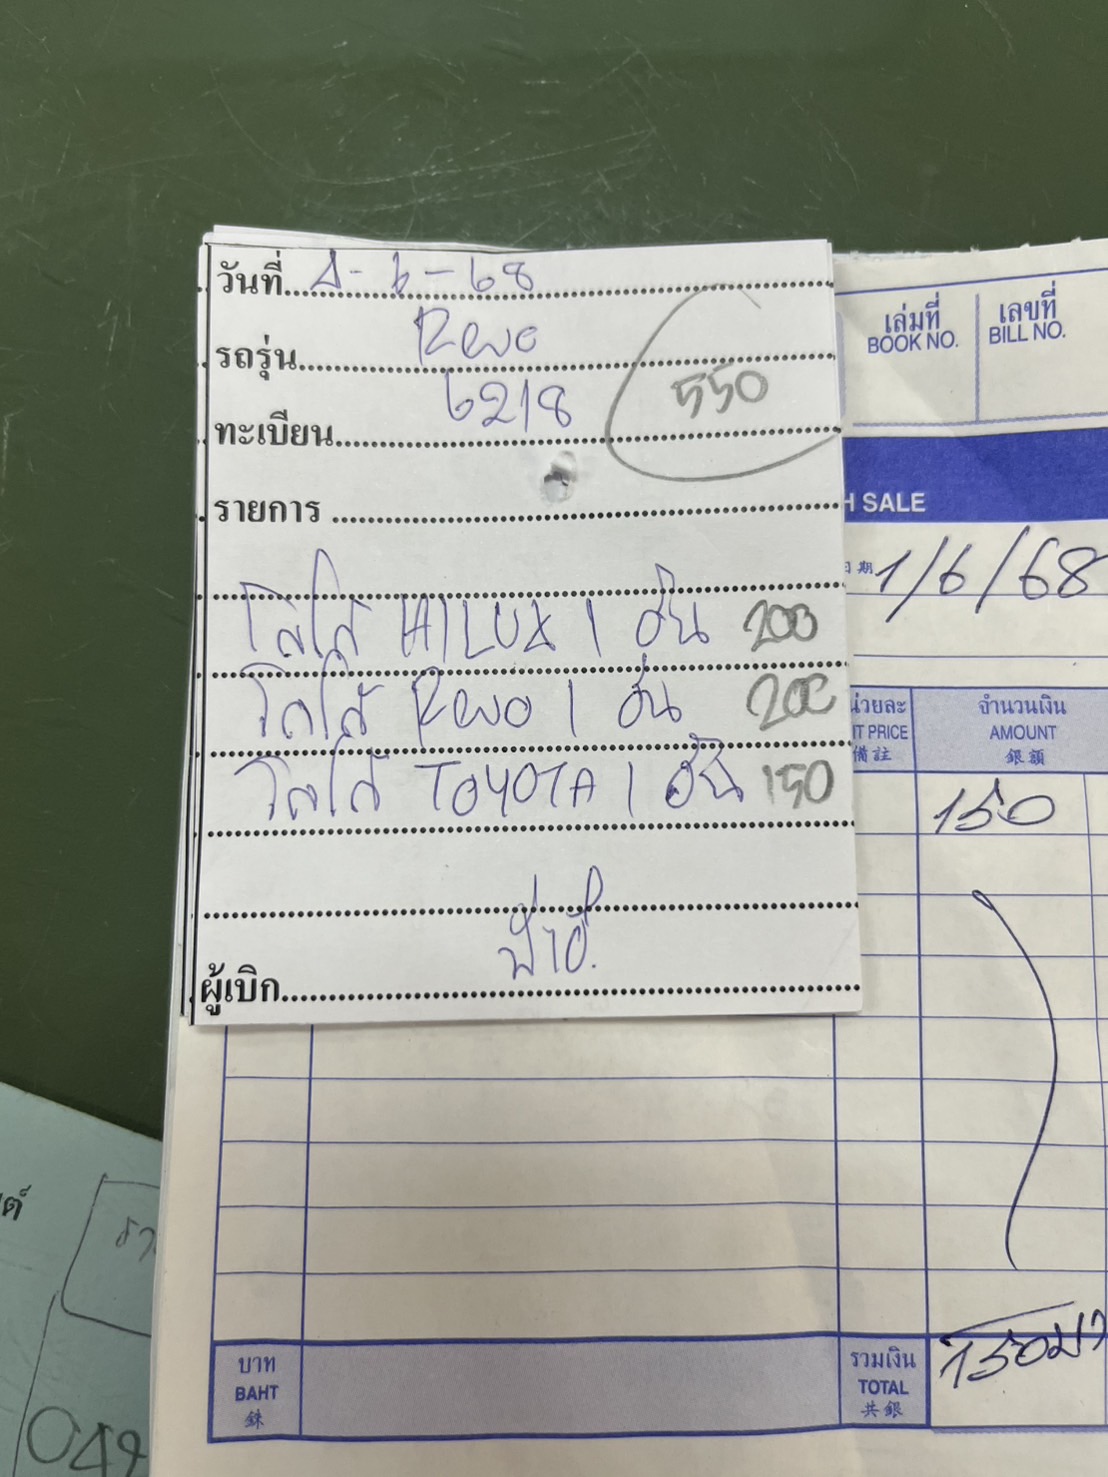 วันที่ 4-6-68
รถรุ่น Revo
ทะเบียน 6218
550
รายการ
โลโก้ HILUX 1 อัน 200
โลโก้ Revo 1 อัน 200
โลโก้ TOYOTA 1 อัน 150
ผู้เบิก
เล่มที่
BOOK NO.
เลขที่
BILL NO.
H SALE
日期 1/6/68
น่วยละ
IT PRICE
備註
จำนวนเงิน
AMOUNT
銀額
150
บาท
BAHT
銖
รวมเงิน
TOTAL
共銀
150
049